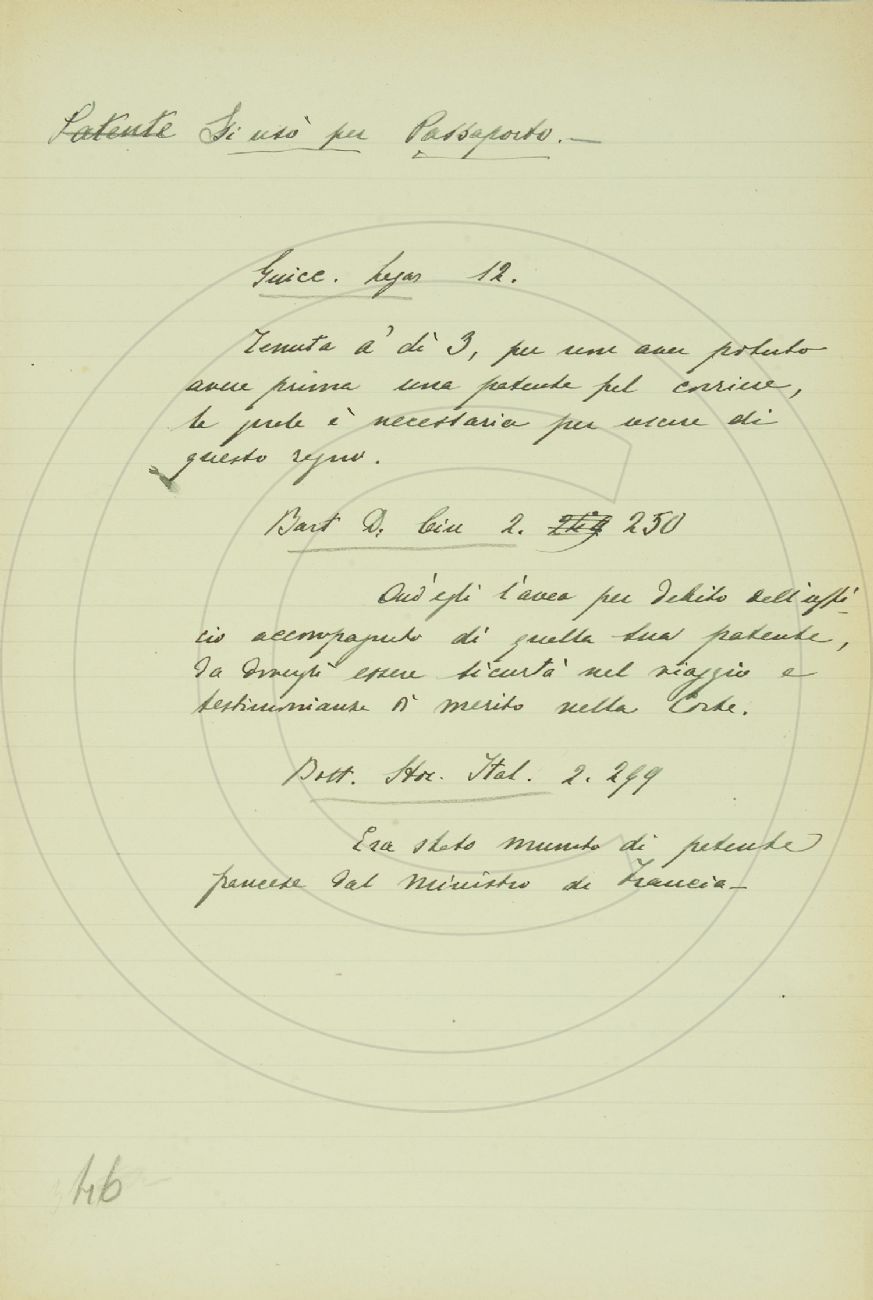 Patente Si usò per Passaporto.—
Guicc. Legaz 12.
Tenuta a' dì 3, per non aver potuto
avere prima una patente pel corriere,
la quale è necessaria per uscire di
questo regno.
Bart D. Cin 2. 250
Ond'egli l'avea per debito dell'uffi-
cio accompagnato di quella sua patente,
da dovergli essere sicurtà nel viaggio e
testimonianza di merito nella Corte.
Bott. Stor. Ital. 2. 299
Era stato munito di patente
francese dal Ministro di Francia—
46